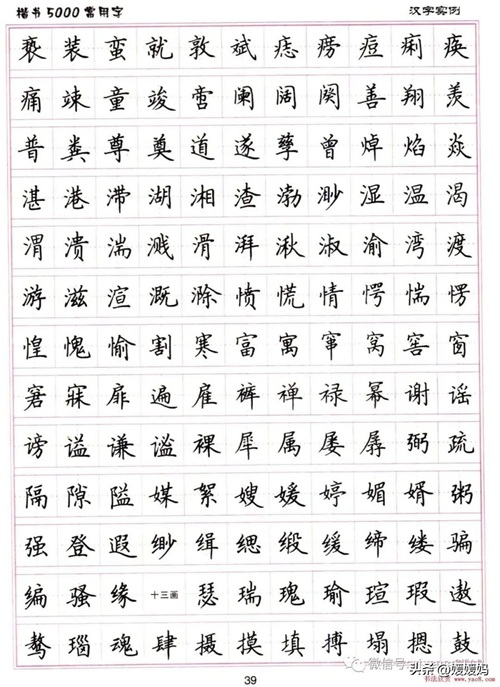 楷书5000常用字 汉字实例
亵 装 蛮 就 敦 斌 痣 痨 痘 痢 痪
痛 竦 童 竣 啻 阑 阔 阕 善 翔 羡
普 粪 尊 奠 道 遂 孳 曾 焯 焰 焱
湛 港 滞 湖 湘 渣 渤 渺 湿 温 渴
渭 溃 湍 溅 滑 湃 湫 淑 渝 湾 渡
游 滋 渲 溉 滁 愤 慌 情 愕 惴 愣
惶 愧 愉 割 寒 富 寓 窜 窝 窖 窗
窘 寐 扉 遍 雇 裤 禅 禄 幂 谢 谣
谤 谥 谦 谧 裸 犀 属 屡 孱 弼 疏
隔 隙 隘 媒 絮 嫂 媛 婷 媚 婿 粥
强 登 遐 缈 缉 缌 缎 缓 缔 缕 骗
编 骚 缘 十三画 瑟 瑞 瑰 瑜 瑄 瑕 遨
骜 瑙 魂 肆 摄 摸 填 搏 塌 摁 鼓
头条 @媛媛妈
39
书法欣赏 www.yac8.com